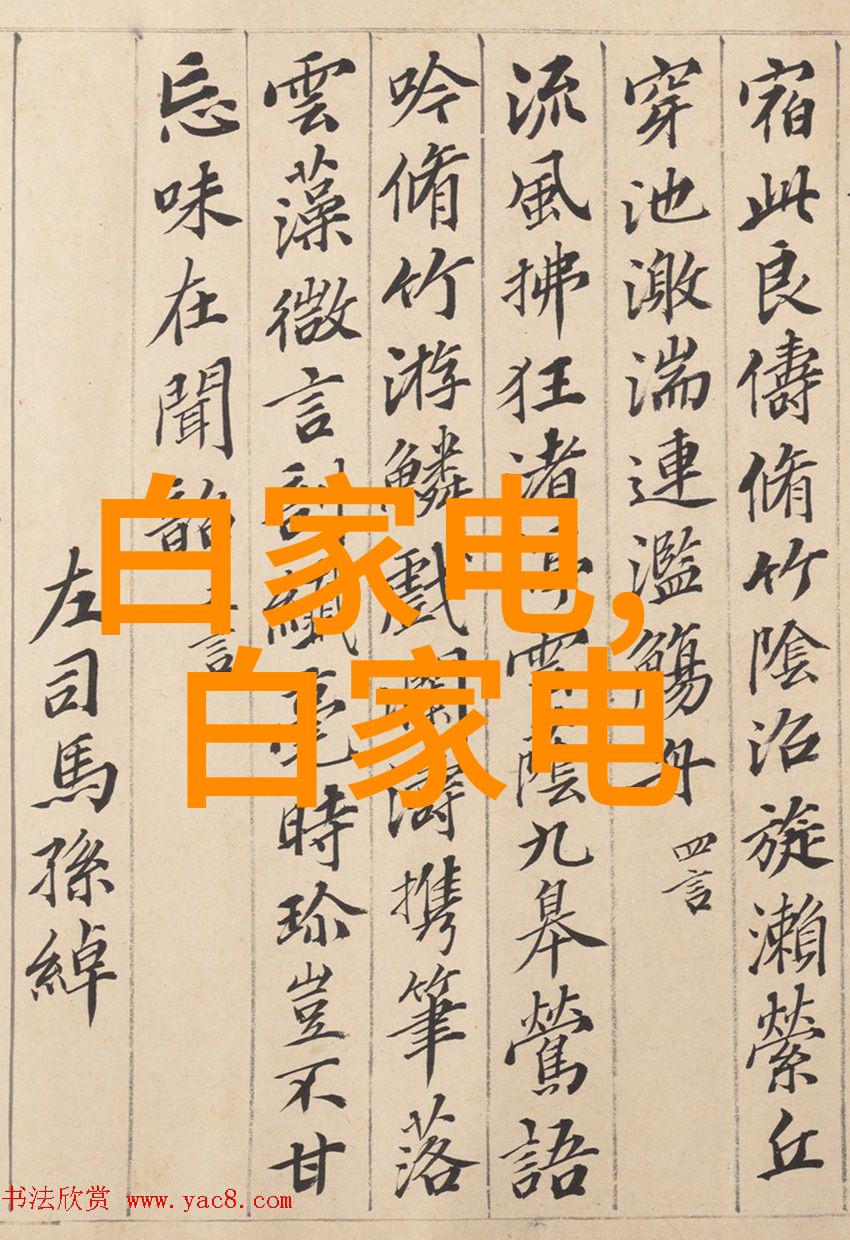 宿此良儔脩竹陰沼旋瀨縈丘
穿池激湍連濫觴舟 四言
流風拂狂渚雲蔭九皋鶯語
吟脩竹游鱗戲瀾濤携筆落
雲藻微言剖纖毫時珍豈不甘
忘味在聞韶 言
左司馬孫綽
白家电,
白家电
书法欣赏 www.yac8.com